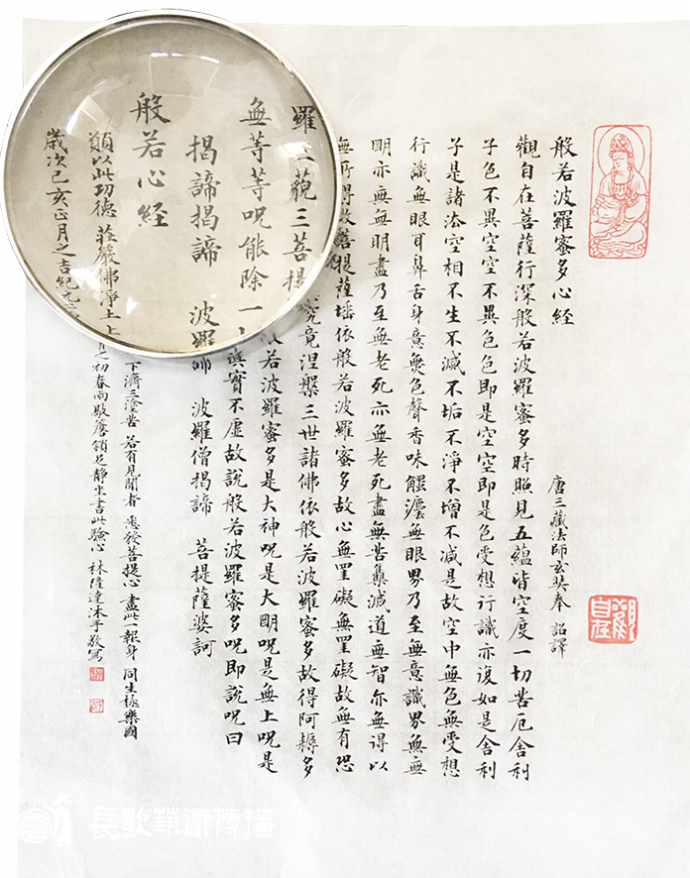 般若波羅蜜多心経
唐三藏法師玄奘奉 詔譯
觀自在菩薩行深般若波羅蜜多時照見五蘊皆空度一切苦厄舍利
子色不異空空不異色色即是空空即是色受想行識亦復如是舍利
子是諸法空相不生不滅不垢不淨不增不減是故空中無色無受想
行識無眼耳鼻舌身意無色聲香味觸法無眼界乃至無意識界無無
明亦無無明盡乃至無老死亦無老死盡無苦集滅道無智亦無得以
無所得故菩提薩埵依般若波羅蜜多故心無罣礙無罣礙故無有恐
究竟涅槃三世諸佛依般若波羅蜜多故得阿耨多
羅三藐三菩提
若波羅蜜多是大神咒是大明咒是無上咒是
無等等咒能除一
真實不虛故說般若波羅蜜多咒即說咒曰
揭諦揭諦 波羅 諦 波羅僧揭諦 菩提薩婆訶
般若心経
願以此功德 莊嚴佛淨土 上
下濟三塗苦 若有見聞者 悉發菩提心 盡此一報身 同生極樂國
歲次己亥正月之吉
之初春雨 靜坐書此 心 林隆達沐手敬寫
觀自在
長歌藝術傳播